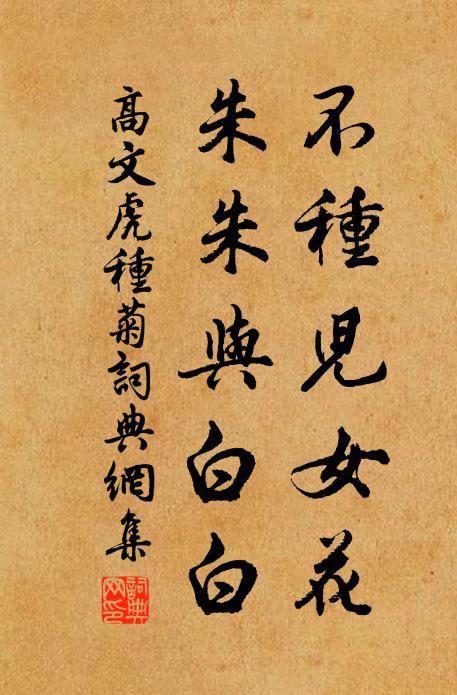 不種兒女花
朱朱與白白
高文虎種菊詞典網集
詞典网印